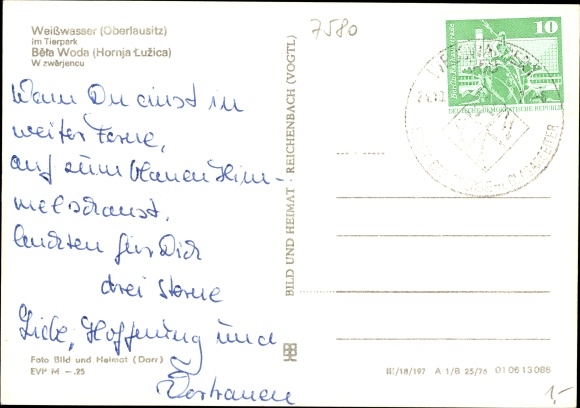 Weißwasser (Oberlausitz)
im Tierpark
Běła Woda (Hornja Łužica)
W zwěrjencu
Wenn Du einst in
weiter Ferne,
auf zum blauen Him-
mel schaust,
leuchten für Dich
drei Sterne
Liebe, Hoffnung und
Vertrauen
Foto Bild und Heimat (Darr)
EVP M –.25
BILD UND HEIMAT · REICHENBACH (VOGTL)
7580
10
DEUTSCHE DEMOKRATISCHE REPUBLIK
III/18/197 A 1/B 25/76 01 06 13 086
1,-